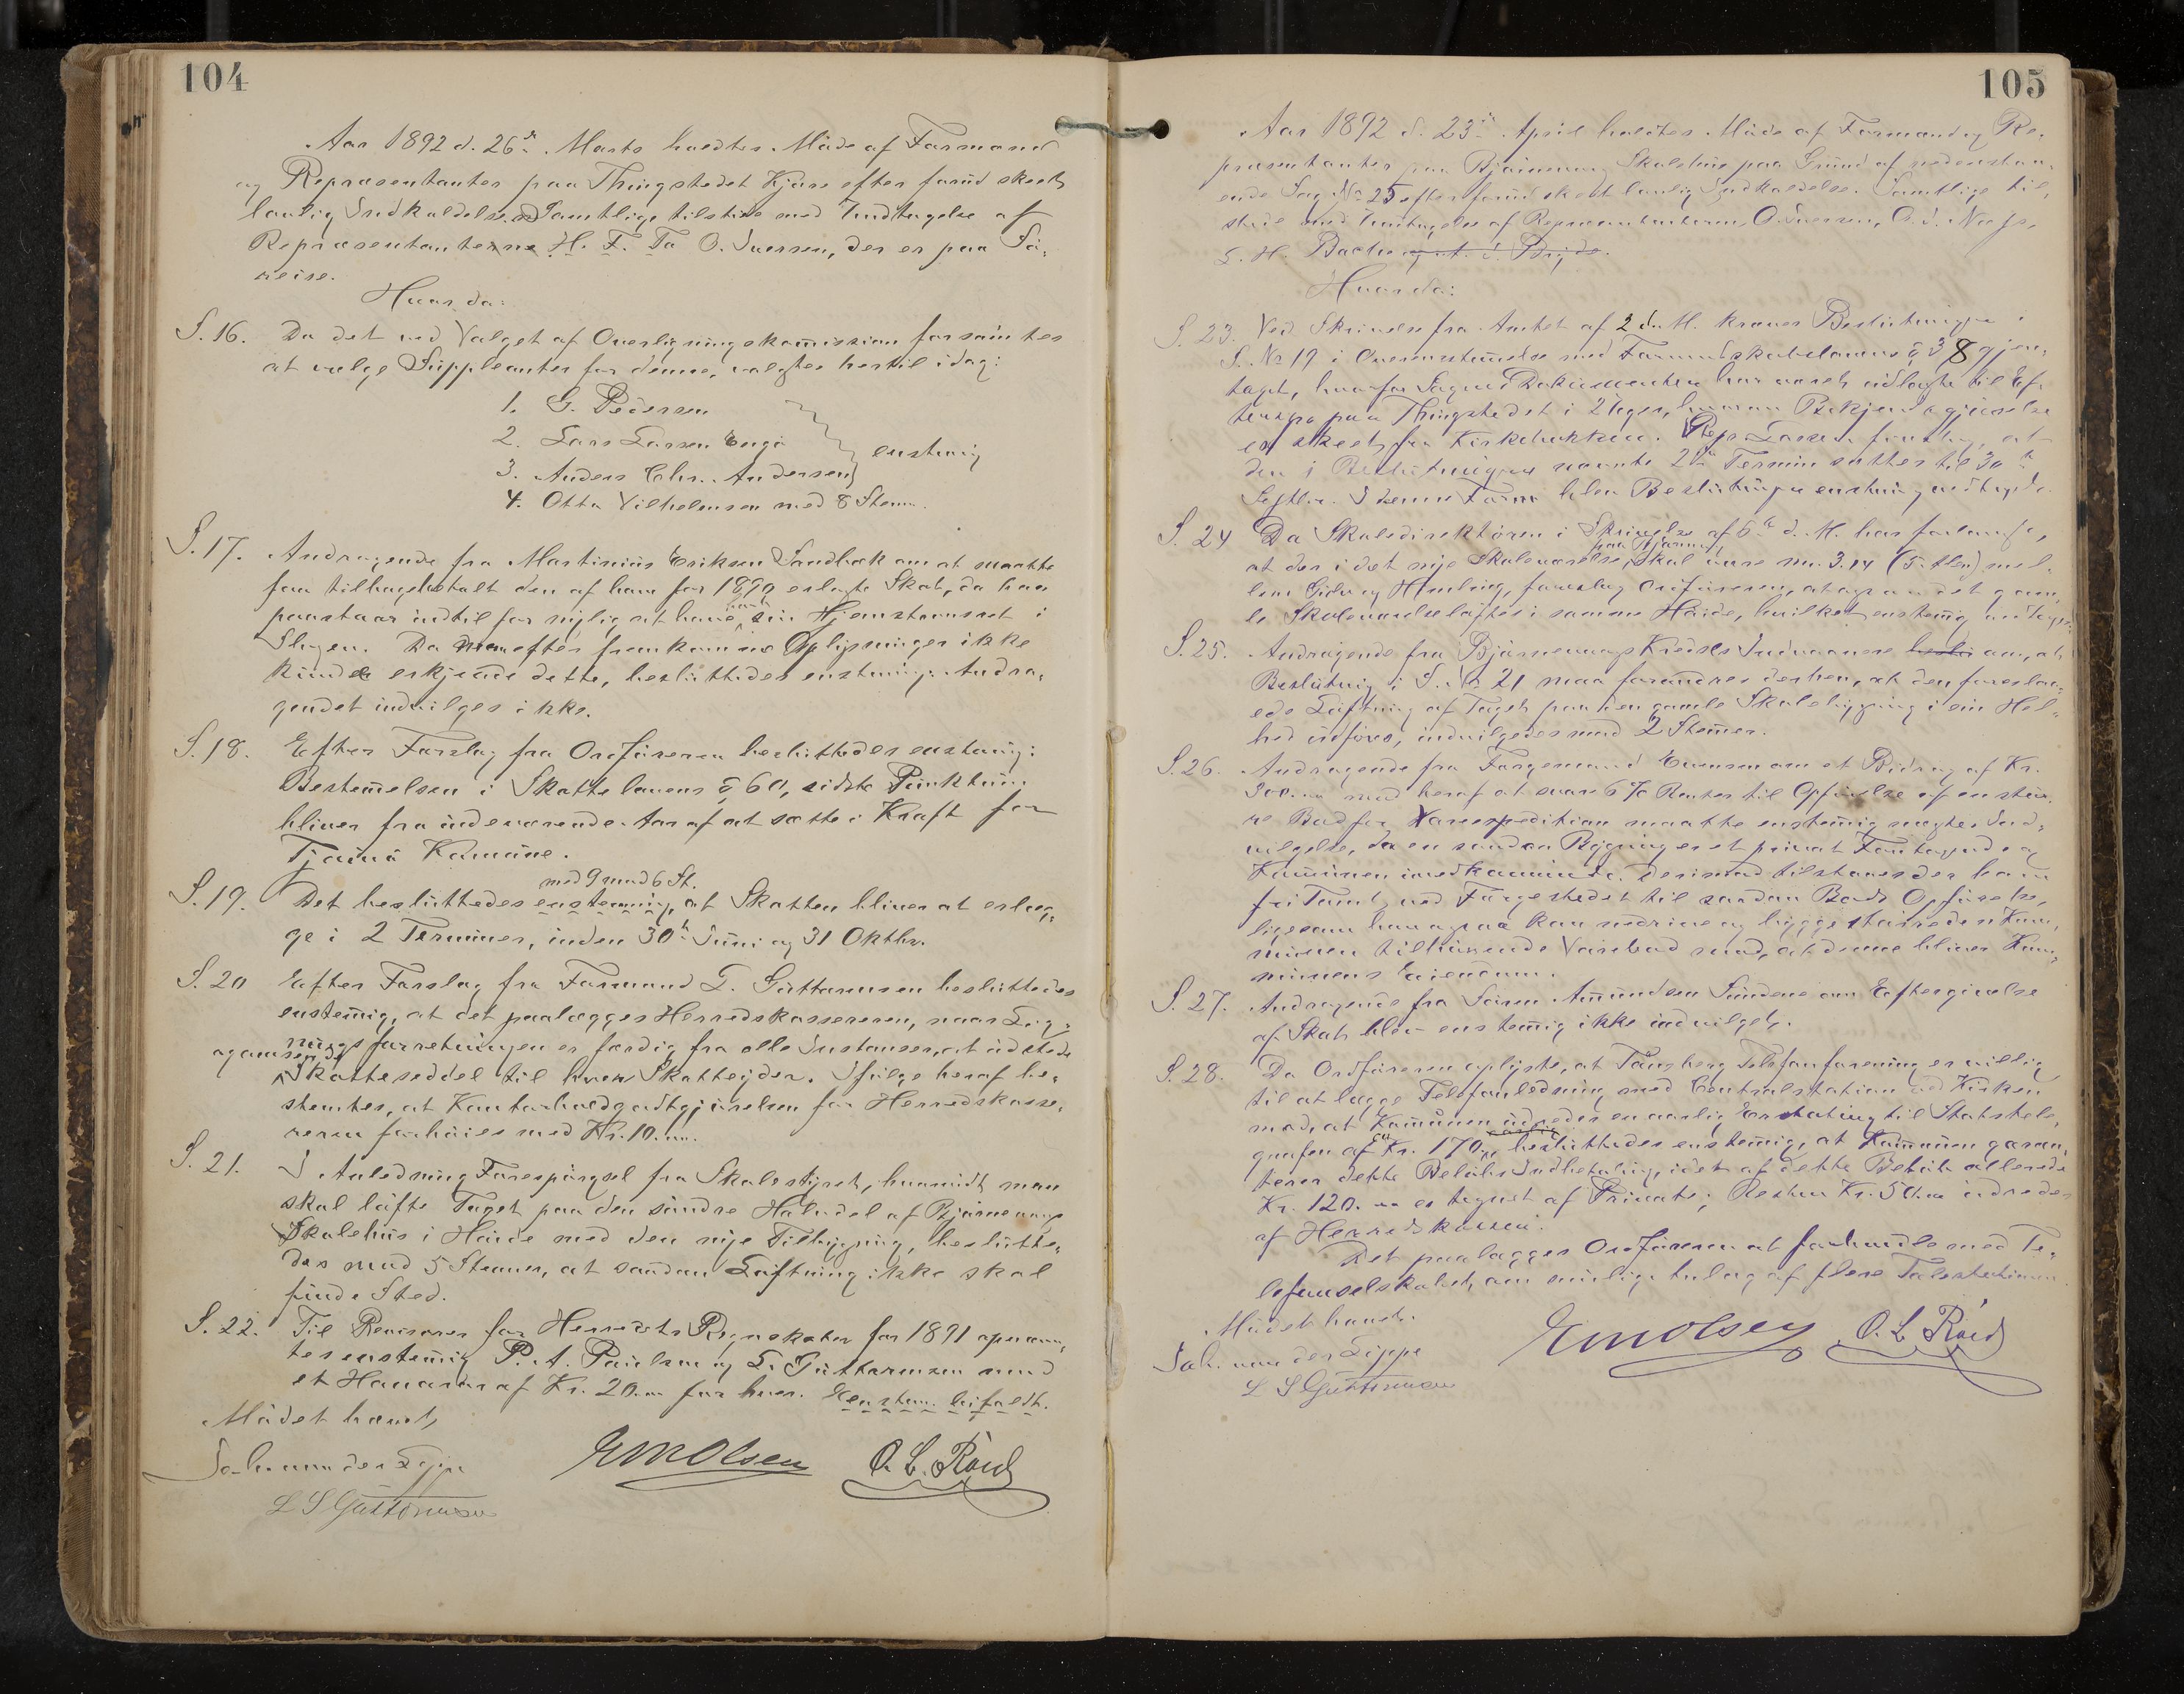 104
Aar 1892 d. 26de Marts holdtes Möde af Formænd
og Repræsentanter paa Thingstedet Kjöre efter forud skeet
lovlig Indkaldelse. Samtlige tilstede med Undtagelse af
Repræsentanterne H. F. To O. Iversen, der er paa Sö-
reise.
Hvor da:
S. 16. Da det ved Valget af Overligningskomission forsömtes
at vælge Suppleanter for denne, valgtes hertil idag:
1. G. Pedersen
2. Lars Larsen Engö
3. Anders Chr. Andersen
enstemig
4. Otto Vilhelmsen med 8 Stem.
S. 17. Andragende fra Martinius Eriksen Sandbæk om at maatte
faa tilbagebetalt den af ham for 1890 erlagte Skat, da han
paastaar indtil for nylig at have havt sin Hjemstavnsret i
Slagen. Da efter fremkomne Oplysninger ikke
kunde erkjende dette, besluttedes enstemig: Andra-
gendet indvilges ikke.
S. 18. Efter Forslag fra Ordföreren besluttedes enstemig:
Bestemelsen i Skattelovens § 60, sidste Punktum
bliver fra indeværende Aar af at sætte i Kraft for
Tjömö Komune.
med 9 mod 6 St.
S. 19. Det besluttedes enstemmig, at Skatten bliver at erlæg-
ge i 2 Terminer, inden 30te Juni og 31 Oktbr.
S. 20 Efter Forslag fra Formand L. Guttormsen besluttedes
enstemig, at det paalægges Herredskassereren, naar Lig-
ningsforretningen er færdig fra alle Instanser, at udstede
og omsende
Skatteseddel til hver Skatteyder. Ifölge heraf be-
stemtes, at Kontorholdgodtgjörelsen for Herredskasse-
reren forhöies med Kr. 10.00.
S. 21. I Anledning Forespörgsel fra Skolestyret, hvorvidt man
skal löfte Taget paa den söndre Halvdel af Bjørnevaag
Skolehus i Höide med den nye Tilbygning, beslutte-
des med 5 Stemer, at saadan Löftning ikke skal
finde Sted.
S. 22. Til Revisorer for Herredets Regnskaber for 1891 opnævn-
tes enstemig P. A. Paulsen og L. Guttormsen med
et Honorar af Kr. 20.00 for hver. Enstem. bifaldt.
Mödet hævet,
Joh. von der Lippe
EmOlsen
O. L. Röed
L S Guttormsen
105
Aar 1892 d. 23de April holdtes Möde af Formænd og Re-
præsentanter paa Bjørnevaag Skolehus paa Grund af nedenstaa-
ende Sag No 25 efter forud skeet lovlig Indkaldelse. Samtlige til-
stede med Undtagelse af Repræsentanterne O. Iversen, O. J. Næss,
L. H. Bache og A. J. Bryde.
Hvor da:
S. 23. Ved Skrivelse fra Amtet af 2 d. M. kræves Beslutningen i
S. No 19 i Overensstemelse med Formandskabslovens § 38 gjen-
taget, hvorfor Sagens Dokumenter har været udlagte til Ef-
tersyn paa Thingstedet i 2 Uger, hvorom Bekjendtgjörelse
er skeet fra Kirkebakken. Rep. Larsen foreslog, at
den i Beslutningen nævnte 2den Termin sættes til 30te
Septbr. I denne Form blev Beslutningen enstemig vedtaget.
S. 24 Da Skoledirektören i Skrivelse af 6te d. M. har forlangt,
paa Hjörnet
at der i det nye Skoleværelse skal være m. 3.14 (5 Alen) mel-
lem Gulv og Himling, foreslog Ordföreren, at ogsaa det gam-
le Skoleværelse löftes i samme Höide, hvilket enstemig vedtoges.
S. 25. Andragende fra Bjørnevaags Kredses Indvaanere om, at
Beslutning i S. No 21 maa forandres derhen, at den foreslaa-
ede Löftning af Taget paa den gamle Skolebygning i sin Hel-
hed udföres, indvilgedes med 2 Stemer.
S. 26. Andragende fra Færgemand Evensen om et Bidrag af Kr.
300.00 mod heraf at svare 6 % Renter til Opförelse af en stör-
re Bod for Vareexpedition maatte enstemig nægtes Ind-
vilgelse, da en saadan Bygning er et privat Foretagende og
Komunen uvedkommende. Derimod tilstaaes der ham
fri Tomt ved Færgestedet til saadan Bods Opförelse,
ligesom han ogsaa kan nedrive og bygge större den Kom-
munen tilhörende Varebod mod, at denne bliver Kom-
munens Eiendom.
S. 27. Andragende fra Sören Amundsen Sundene om Eftergivelse
af Skat blev enstemig ikke indvilget.
S. 28. Da Ordföreren oplyste, at Tönsberg Telefonforening er villig
til at lægge Telefonledning med Centralstation ved Kirken
mod, at Komunen udreder en aarlig Erstatning til Statstele-
grafen af ca Kr. 170.00, besluttedes enstemig, at Komunen garan-
terer dette Belöbs Indbetaling, idet af dette Belöb allerede
Kr. 120.00 er tegnet af Private; Resten Kr. 50.00 udredes
af Herredskassen.
Det paalægges Ordföreren at forhandle med Te-
lefonselskabet om mulig Anlæg af flere Talestationer
Mödet hævet.
Joh. von der Lippe
EmOlsen
O. L. Röed
L S Guttormsen